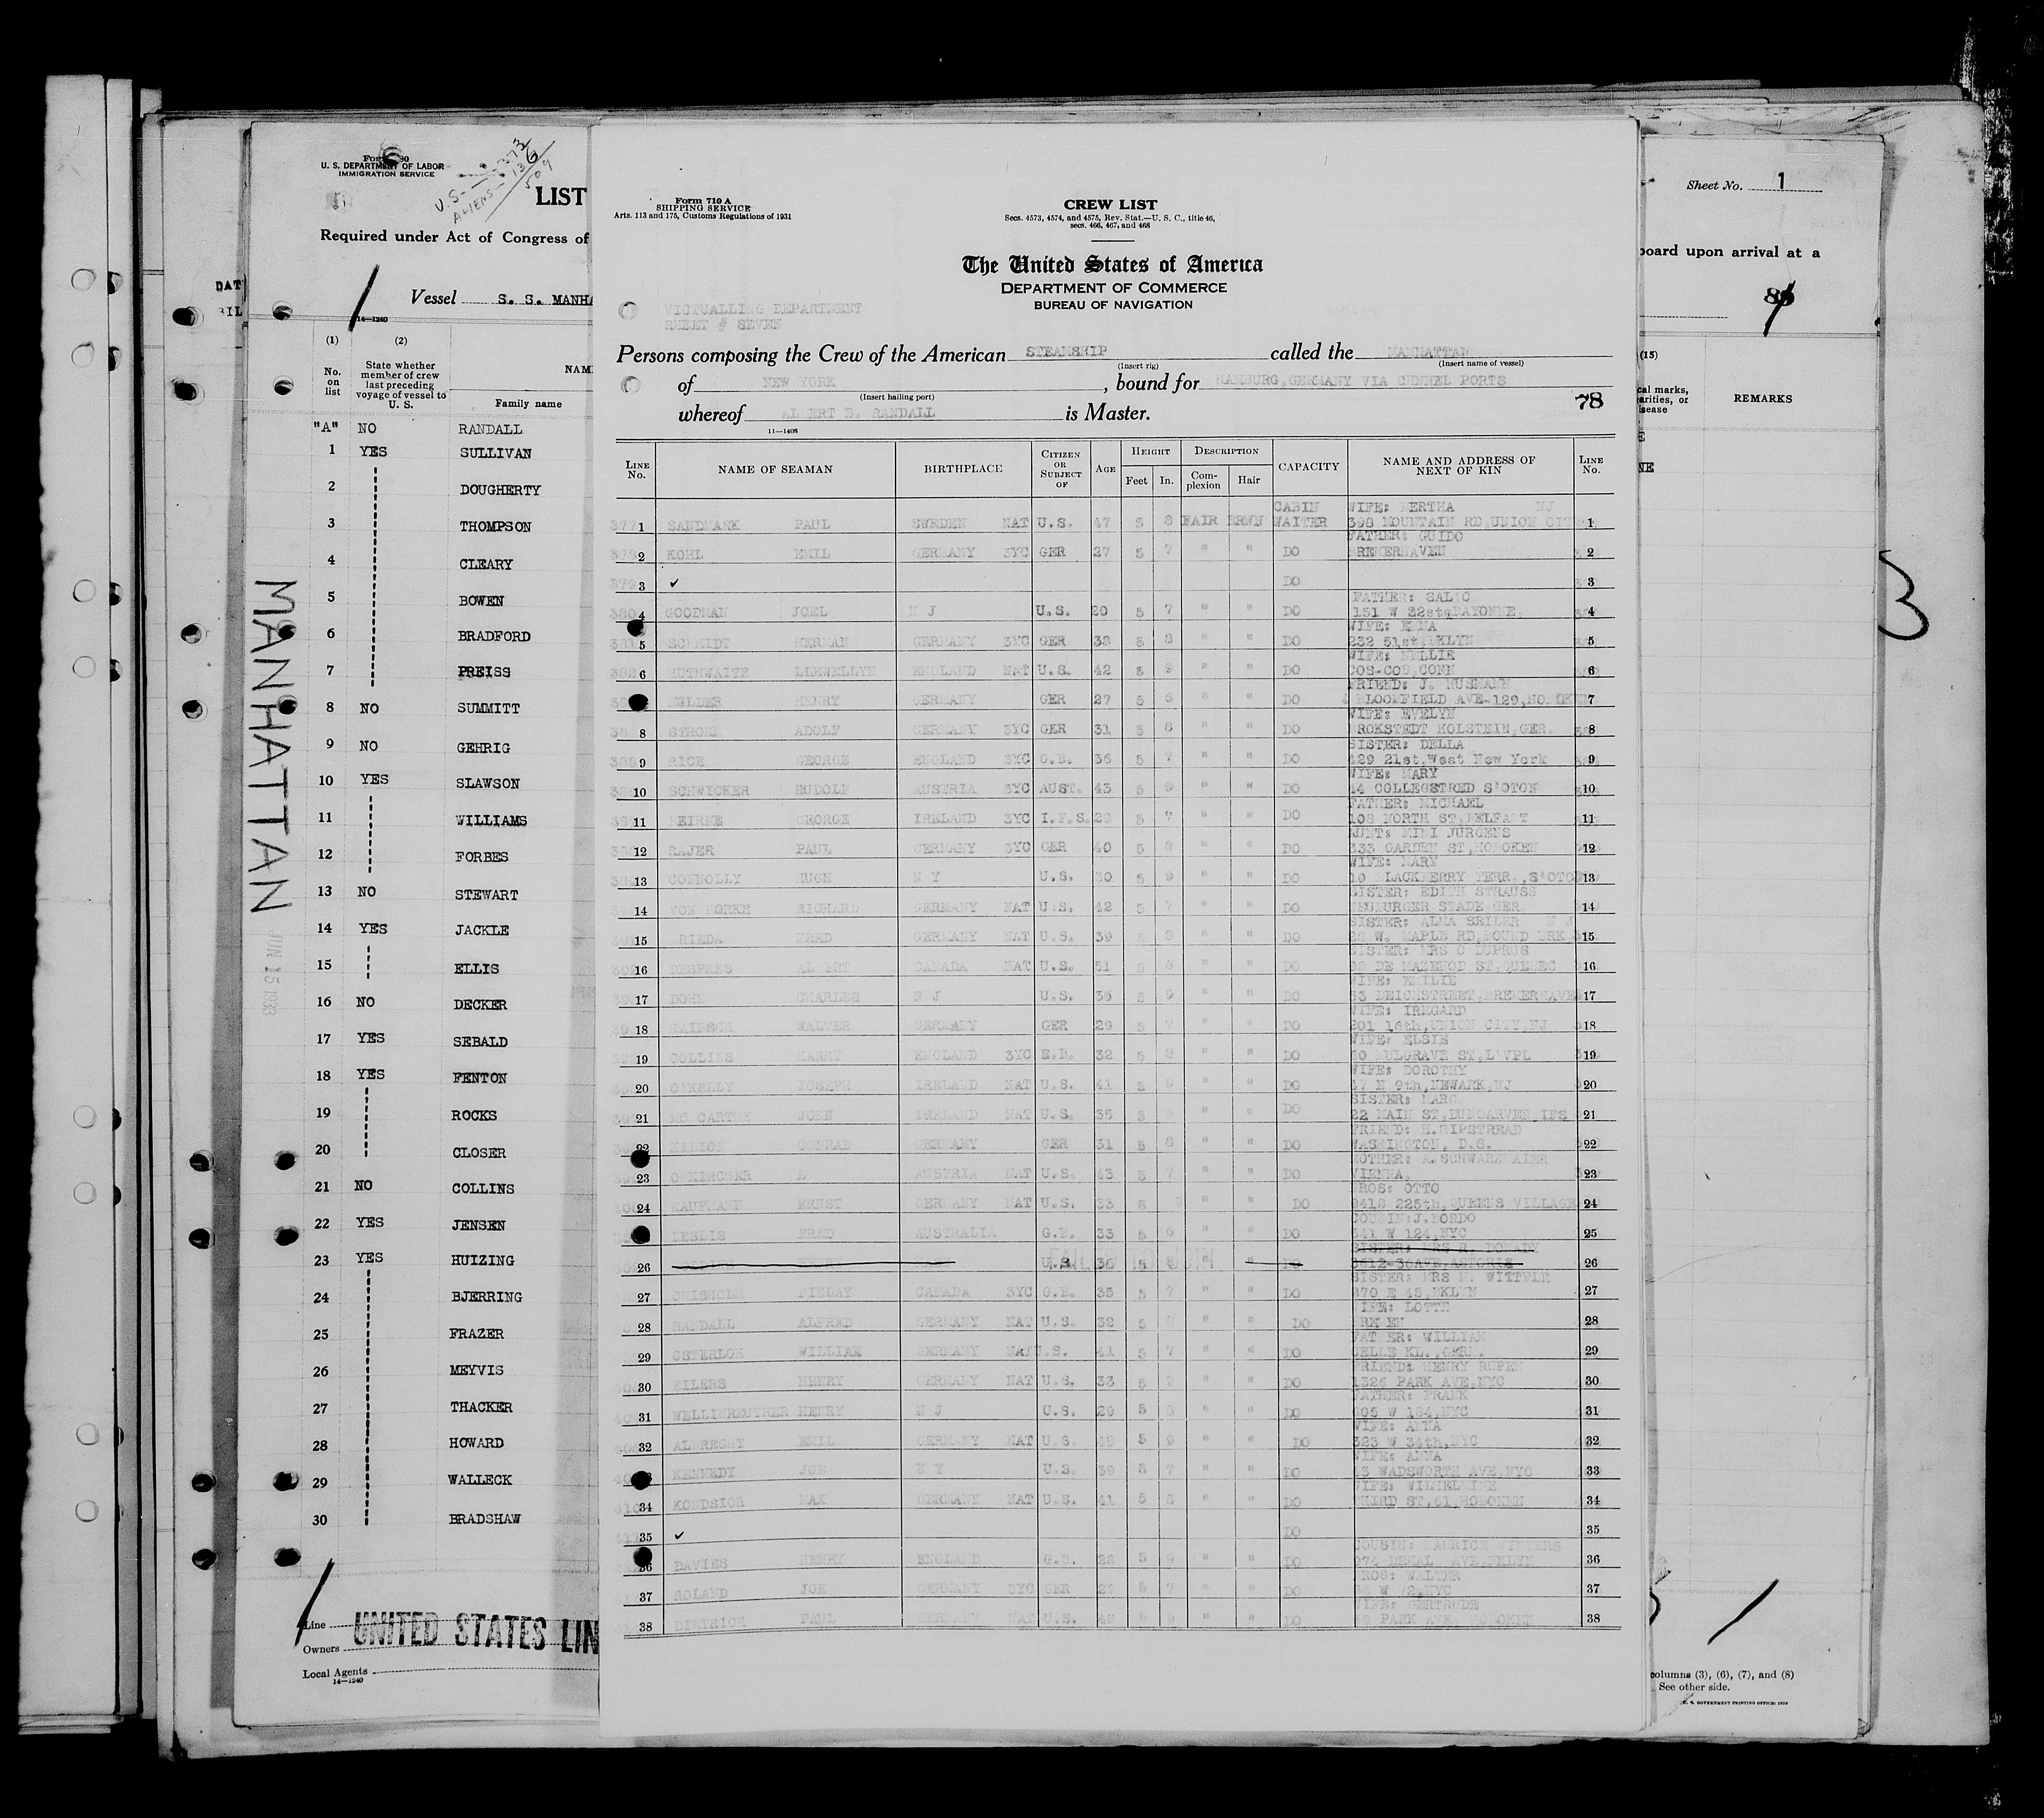 Form 710 A
SHIPPING SERVICE
Arts. 113 and 175, Customs Regulations of 1931
CREW LIST
Secs. 4573, 4574, and 4575, Rev. Stat.—U. S. C., title 46,
secs. 466, 467, and 468
The United States of America
DEPARTMENT OF COMMERCE
BUREAU OF NAVIGATION
VICTUALLING DEPARTMENT
SHEET # SEVEN
Persons composing the Crew of the American STEAMSHIP called the MANHATTAN
(Insert rig) (Insert name of vessel)
of NEW YORK , bound for HAMBURG, GERMANY VIA CHNNEL PORTS
(Insert hailing port)
78
whereof ALBERT B. RANDALL is Master.
11—1408
LINE No. NAME OF SEAMAN BIRTHPLACE CITIZEN OR SUBJECT OF AGE HEIGHT Feet In. DESCRIPTION Complexion Hair CAPACITY NAME AND ADDRESS OF NEXT OF KIN LINE No.
CABIN WIFE: BERTHA NJ
1 SANDMARK PAUL SWEDEN NAT U.S. 47 5 8 FAIR BRWN WAITER 398 MOUNTAIN RD, UNION CIT 1
FATHER: GUIDO
2 KOHL EMIL GERMANY 3YC GER 27 5 7 " " DO BREMERHAVEN 2
3 ✓ DO 3
FATHER:
4 GOODMAN JOEL N J U.S. 20 5 7 " " DO 151 W 32st BAYONNE 4
WIFE: EMMA
5 SCHMIDT HERMAN GERMANY 3YC GER 38 5 8 " " DO 232 51st, BKLYN 5
WIFE: NELLIE
6 HUTHWAITE LLEWELLYN ENGLAND NAT U.S. 42 5 9 " " DO COS-COB, CONN 6
FRIEND: J. HUSMANN
HENRY GERMANY GER 27 5 6 " " DO BLOOMFIELD AVE-129, 7
WIFE: EVELYN
8 ADOLF GERMANY 3YC GER 31 5 8 " " DO BROKSTEDT HOLSTEIN, GER. 8
SISTER: DELLA
9 RICE GEORGE ENGLAND 3YC G.B. 36 5 7 " " DO 129 21st, West New York 9
WIFE: MARY
10 SCHWICKER RUDOLF AUSTRIA 3YC AUST. 43 5 9 " " DO 14 COLLEGSTRED S'OTON 10
FATHER: MICHAEL
11 BEIRNE GEORGE IRELAND 3YC I.F.S. 29 5 7 " " DO 108 NORTH ST, BELFAST 11
AUNT: MIMI JURGENS
12 RAJER PAUL GERMANY 3YC GER 40 5 8 " " DO 333 GARDEN ST, HOBOKEN 12
WIFE: MARY
13 CONNOLLY HUGH N Y U.S. 30 5 9 " " DO 10 BLACKBERRY TERR., S'OTON 13
SISTER: EDITH STRAUSS
14 VON BORKE RICHARD GERMANY NAT U.S. 42 5 7 " " DO STADE GER. 14
SISTER: ALMA SEILER N J
15 FRED GERMANY NAT U.S. 39 8 " " DO W. MAPLE RD, BOUND BRK 15
SISTER: MRS C DUPRUS
16 DESPRES ALBERT CANADA NAT U.S. 51 5 6 " " DO DE MAZENOD ST, QUEBEC 16
WIFE: EMILIE
17 DOHM CHARLES N J U.S. 36 5 9 " " DO 53 DEICHSTREET, BREMERHAVE 17
WIFE: IRMGARD
18 WALTER GERMANY GER 29 5 7 " " DO 201 16th, UNION CITY, NJ 18
WIFE: ELSIE
19 COLLINS HARRY ENGLAND 3YC 32 5 8 " " DO 40 MULGRAVE ST, L'VPL 19
WIFE: DOROTHY
20 O'KELLY JOSEPH IRELAND NAT U.S. 41 5 9 " " DO 17 N 9th, NEWARK, NJ 20
SISTER: MARG.
21 MC CARTHY JOHN IRELAND NAT U.S. 35 5 " " DO 22 MAIN ST, DUNGARVEN, IFS 21
FRIEND: H. RIPSTREAD
22 CONRAD GERMANY GER 31 5 8 " " DO WASHINGTON, D.C. 22
MOTHER: A. SCHWARZMAIER
23 L AUSTRIA NAT U.S. 43 5 7 " " DO VIENNA, 23
BROS: OTTO
24 KAUFMANN ERNST GERMANY NAT U.S. 33 5 " " DO 9418 225th, QUEENS VILLAGE 24
COUSIN: J. NORDO
LESLIS FRED AUSTRALIA G.B. 33 5 6 " " DO 541 W 124, NYC 25
SISTER: MRS R.
26 U.S. 36 5 8 " DO 3612-30AVE, ASTORIA 26
FAILED TO JOIN
SISTER: MRS M. WITTPLE
27 CHISHOLM FINLAY CANADA 3YC G.B. 35 5 7 " " DO 370 E 45, BKLYN 27
WIFE: LOTTE
28 RANDALL ALFRED GERMANY NAT U.S. 32 5 " " DO BREMEN 28
FATHER: WILLIAM
29 OSTERLOH WILLIAM GERMANY NAT U.S. 41 5 7 " " DO CELLE KL., GERM. 29
FRIEND: HENRY RUPEN
30 EILERS HENRY GERMANY NAT U.S. 33 5 9 " " DO 1326 PARK AVE, NYC 30
FATHER: FRANK
31 WELLINREUTHER HENRY N J U.S. 29 5 8 " " DO 605 W 184, NYC 31
WIFE: ANNA
32 ALBRECHT EMIL GERMANY NAT U.S. 5 9 " " DO 323 W 34th, NYC 32
WIFE: ANNA
KENNEDY JOE N Y U.S. 39 5 7 " " DO 13 WADSWORTH AVE, NYC 33
WIFE: WILHELMINE
34 KONDSIOR MAX GERMANY NAT U.S. 41 5 8 " " DO THIRD ST, 61, HOBOKEN 34
35 ✓ DO 35
COUSIN: MAURICE WINTERS
36 DAVIES HENRY ENGLAND G.B. 28 5 " " DO DEKAL AVE, BKLYN 36
BROS: WALTER
37 ROLAND JOE GERMANY 3YC GER 27 5 7 " " DO W 72, NYC 37
WIFE: GERTRUDE
38 DIETRICH PAUL GERMANY NAT U.S. 5 " " DO PARK AVE, HOBOKEN 38
U. S. DEPARTMENT OF LABOR
IMMIGRATION SERVICE
U.S.- 373
ALIENS- 136
509
LIST
Required under Act of Congress of
Vessel S. S. MANHA
14—1240
(1) (2)
No. on list
State whether member of crew last preceding voyage of vessel to U. S.
NAM
Family name
"A" NO RANDALL
1 YES SULLIVAN
2 DOUGHERTY
3 THOMPSON
4 CLEARY
5 BOWEN
6 BRADFORD
7 PREISS
8 NO SUMMITT
9 NO GEHRIG
10 YES SLAWSON
11 WILLIAMS
12 FORBES
13 NO STEWART
14 YES JACKLE
15 ELLIS
16 NO DECKER
17 YES SEBALD
18 YES FENTON
19 ROCKS
20 CLOSER
21 NO COLLINS
22 YES JENSEN
23 YES HUIZING
24 BJERRING
25 FRAZER
26 MEYVIS
27 THACKER
28 HOWARD
29 WALLECK
30 BRADSHAW
MANHATTAN
JUN 15 1933
Line
Owners UNITED STATES LIN
Local Agents
14—1240
DAT
Sheet No. 1
board upon arrival at a
(15)
cal marks,
arities, or
isease
REMARKS
3
columns (3), (6), (7), and (8)
See other side.
U. S. GOVERNMENT PRINTING OFFICE